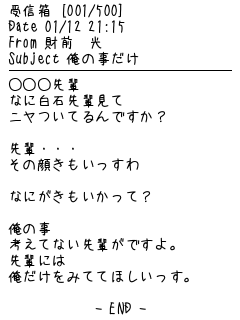 受信箱 [001/500]
Date 01/12 21:15
From 財前 光
Subject 俺の事だけ
○○○先輩
なに白石先輩見て
ニヤついてるんですか?
先輩・・・
その顔きもいっすわ
なにがきもいかって?
俺の事
考えてない先輩がですよ。
先輩には
俺だけをみててほしいっす。
- END -